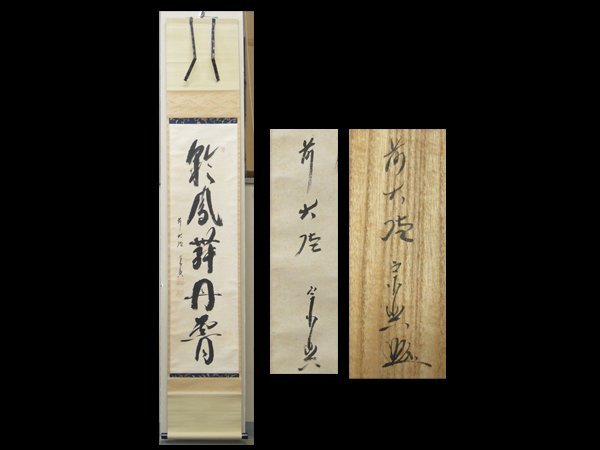 彩鳳舞丹霄
前大徳 宗興
前大徳 宗興
前大徳 宗興